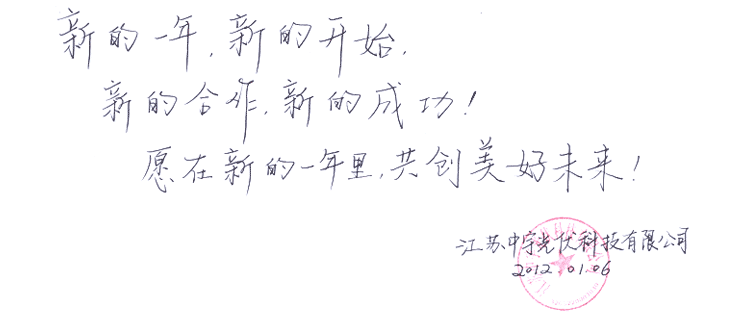 新的一年,新的开始,
新的合作,新的成功!
愿在新的一年里,共创美好未来!
江苏中宇光伏科技有限公司
2012.01.06